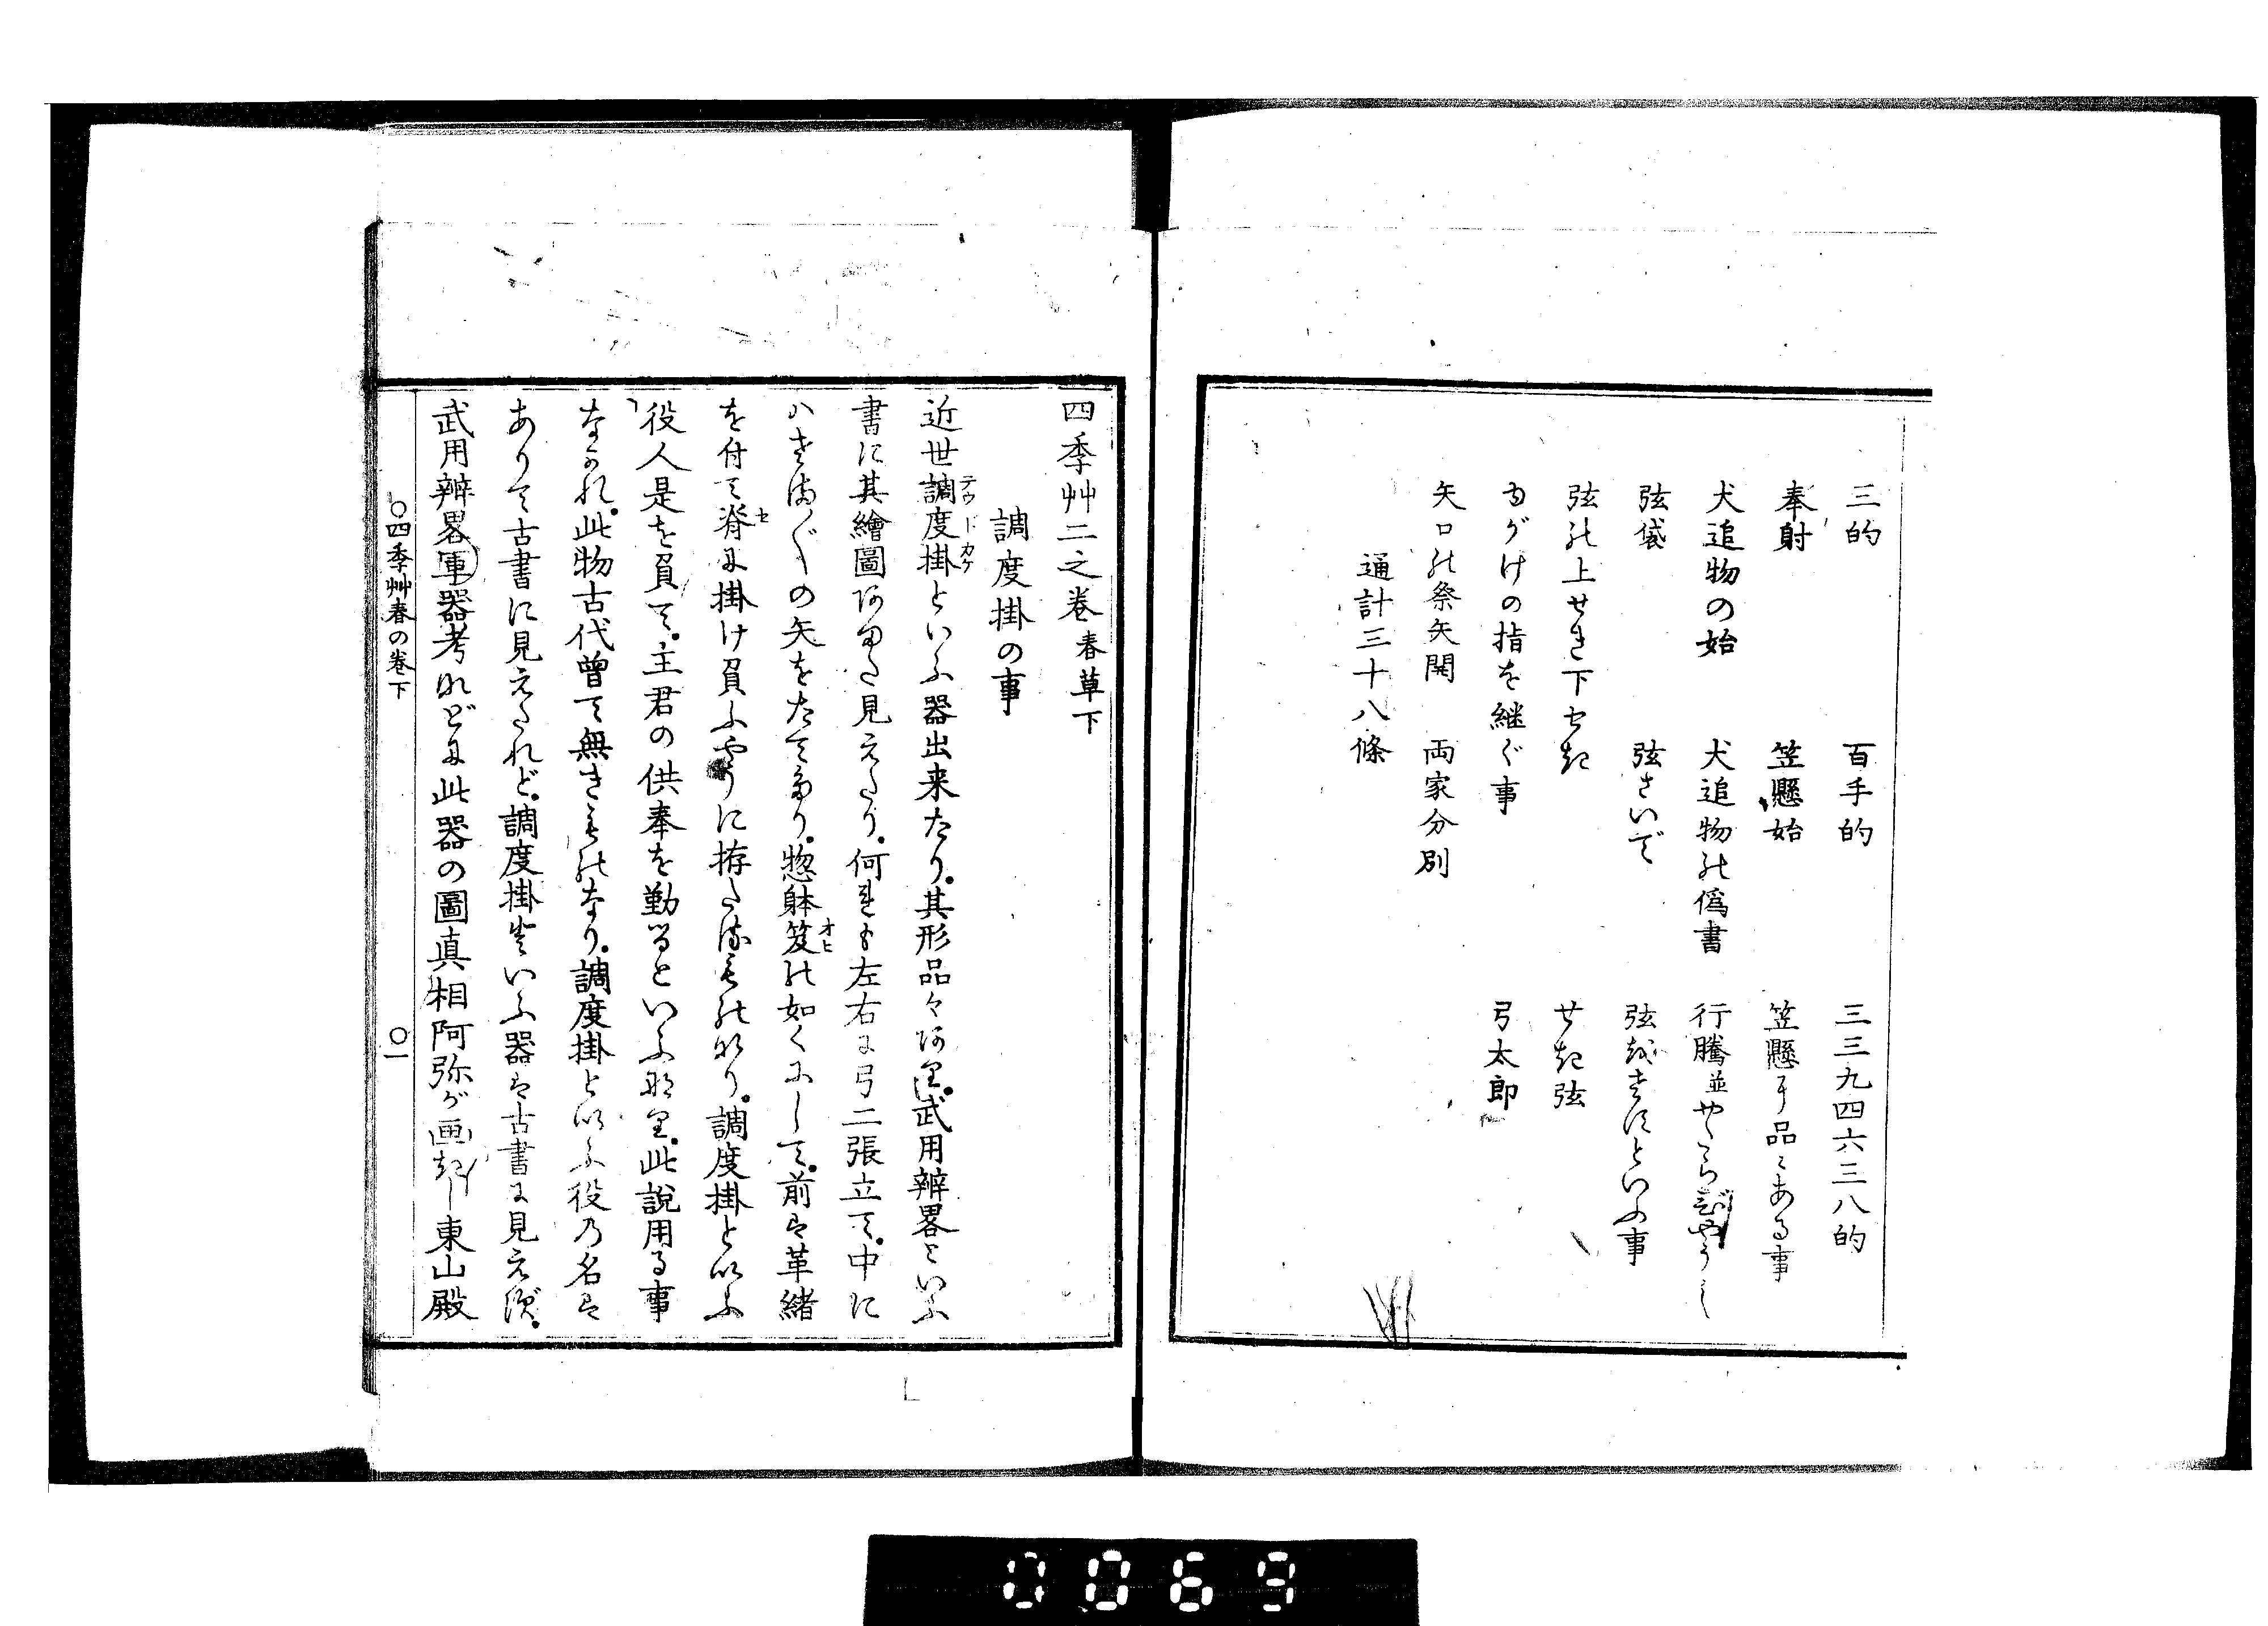 三的　百手的　三三九四六三八的
奉射　笠懸始　笠懸に品々ある事
犬追物の始　犬追物の偽書　行騰並や
弦袋　弦さいで　といふ事
弦の上せき下せき　せき弦
ゆがけの指を継ぐ事　弓太郎
矢口の祭矢開　両家分別
通計三十八條
四季艸二之巻 春草下
調度掛の事
近世調度掛といふ器出来たり。其形品々あり。武用辨畧といふ
テウドカケ
書に其繪圖あまた見えたり。何れも左右に弓二張立て。中に
ハさま〴〵の矢をたてたり。惣躰笈の如くにして。前は革緒
オヒ
を付て脊に掛け負ふやうに拵たるものなり。調度掛といふ
セ
役人是を負て。主君の供奉を勤るといふなり。此説用る事
なかれ。此物古代曾て無きものなり。調度掛といふ役の名は
ありて古書に見えたれど。調度掛といふ器は古書に見えず。
武用辨畧軍器考などに此器の圖真相阿弥が画きし東山殿
〇四季艸春の巻下　〇一
0069